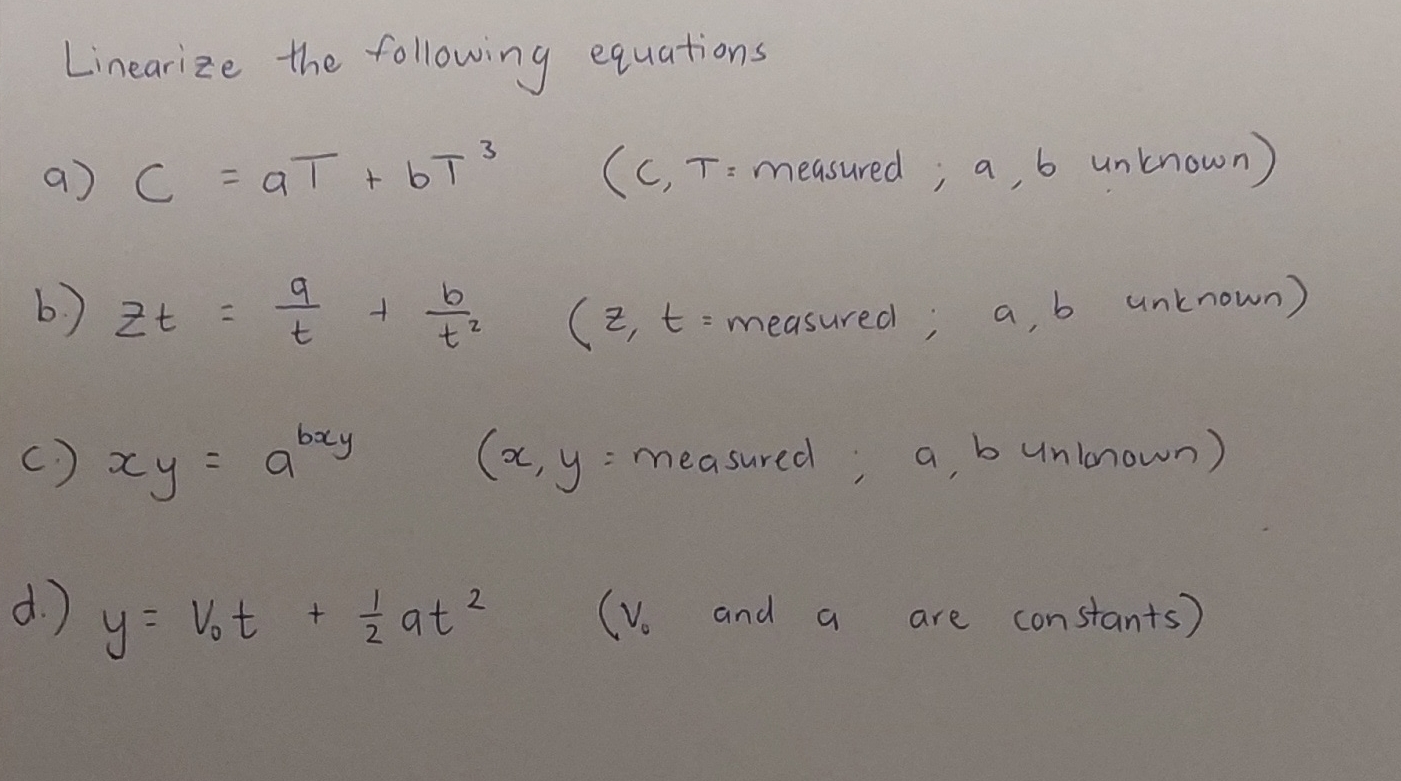 Linearize the following equations
a) C = aT + bT³ (C, T = measured ; a, b unknown)
b.) zt = a/t + b/t² (z, t = measured ; a, b unknown)
c.) xy = a^bxy (x, y = measured ; a, b unknown)
d.) y = V₀t + ½at² (V₀ and a are constants)